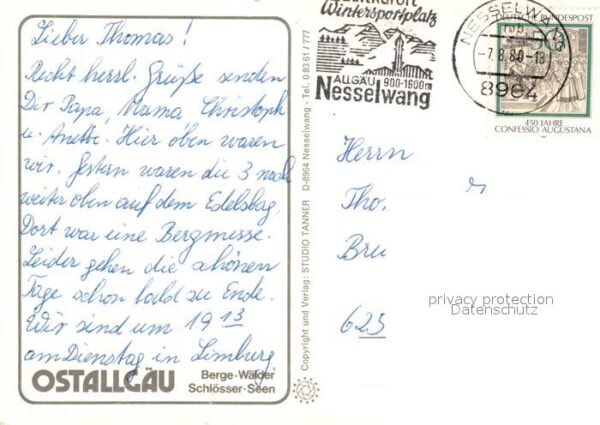 Lieber Thomas!
Recht herzl. Grüße senden
Dir Papa, Mama Christoph
u. Anette. Hier oben waren
wir. Gestern waren die 3 noch
weiter oben auf dem Edelsberg.
Dort war eine Bergmesse.
Leider gehen die schönen
Tage schon bald zu Ende.
Wir sind um 19 13
am Dienstag in Limburg
OSTALLGÄU
Berge-Wälder
Schlösser-Seen
Copyright und Verlag: STUDIO TANNER D-8964 Nesselwang · Tel. 0 83 61 / 777
Wintersportplatz
ALLGÄU 900-1600m
Nesselwang
NESSELWANG
-7.8.80-18
8964
DEUTSCHE BUNDESPOST
450 JAHRE
CONFESSIO AUGUSTANA
Herrn
Tho
Bru
625
privacy protection
Datenschutz